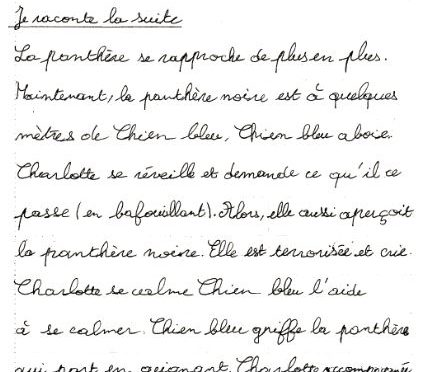 Je raconte la suite
La panthère se rapproche de plus en plus.
Maintenant, la panthère noire est à quelques
mètres de Chien bleu, Chien bleu aboie.
Charlotte se réveille et demande ce qu'il ce
passe (en bafouillant). Alors, elle aussi aperçoit
la panthère noire. Elle est terrorisée et crie.
Charlotte se calme Chien bleu l'aide
à se calmer. Chien bleu griffe la panthère
qui part en geignant. Charlotte accompagnée